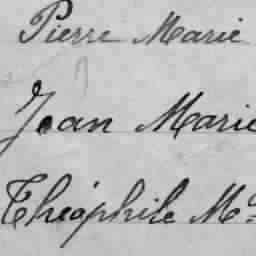 Pierre Marie
Jean Marie
Théophile M